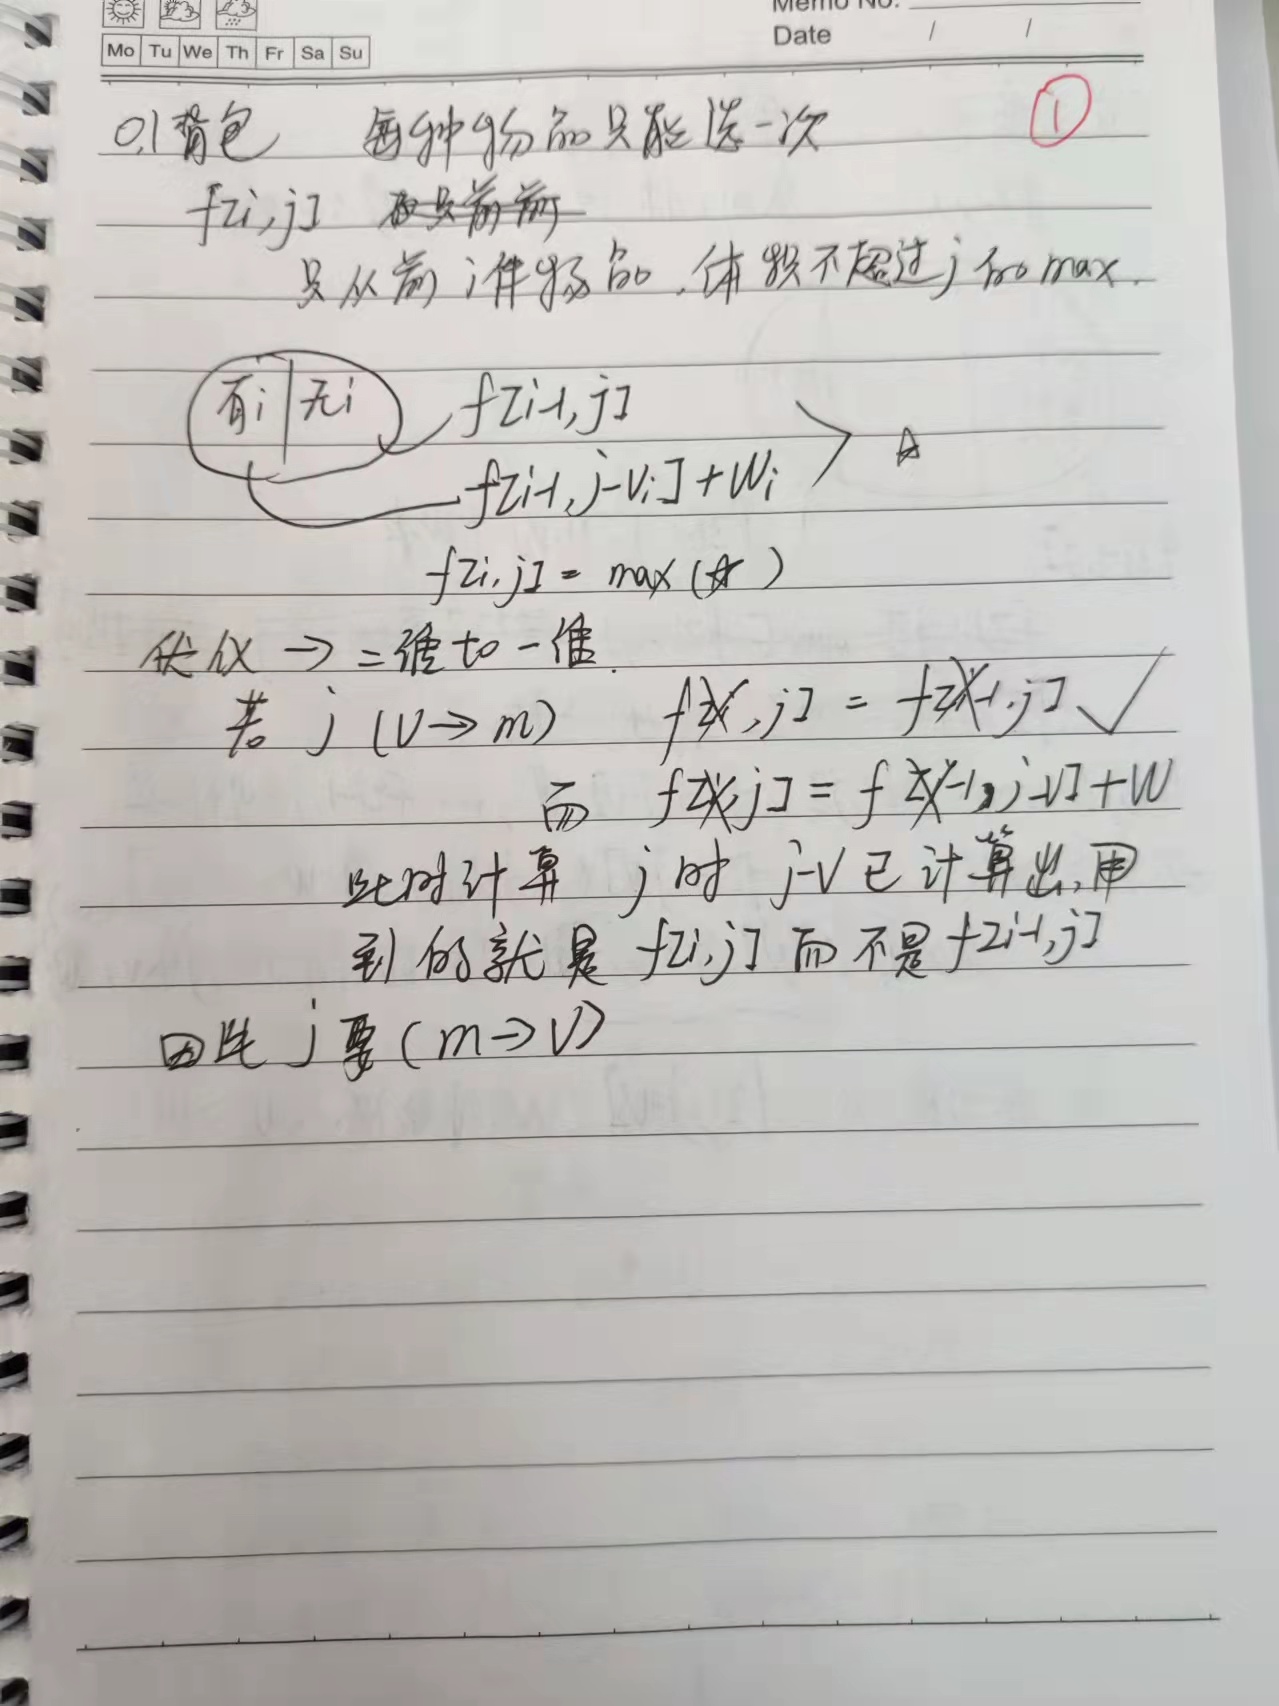 Memo No.
Date / /
Mo Tu We Th Fr Sa Su
0,1背包 每种物品只能选一次
①
f[i,j]
只从前i件物品,体积不超过j的max.
有i|无i f[i-1,j]
f[i-1,j-Vi]+Wi
☆
f[i,j]=max(☆)
优化→二维to一维.
若 j (V→m) f[i,j]=f[i-1,j]✓
而 f[i,j]=f[i-1,j-V]+W
此时计算j时 j-V已计算出,用
到的就是f[i,j]而不是f[i-1,j]
因此j要(m→V)